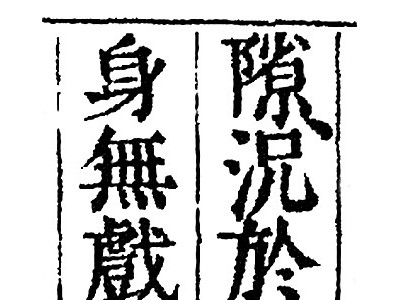 隙况於
身無戲